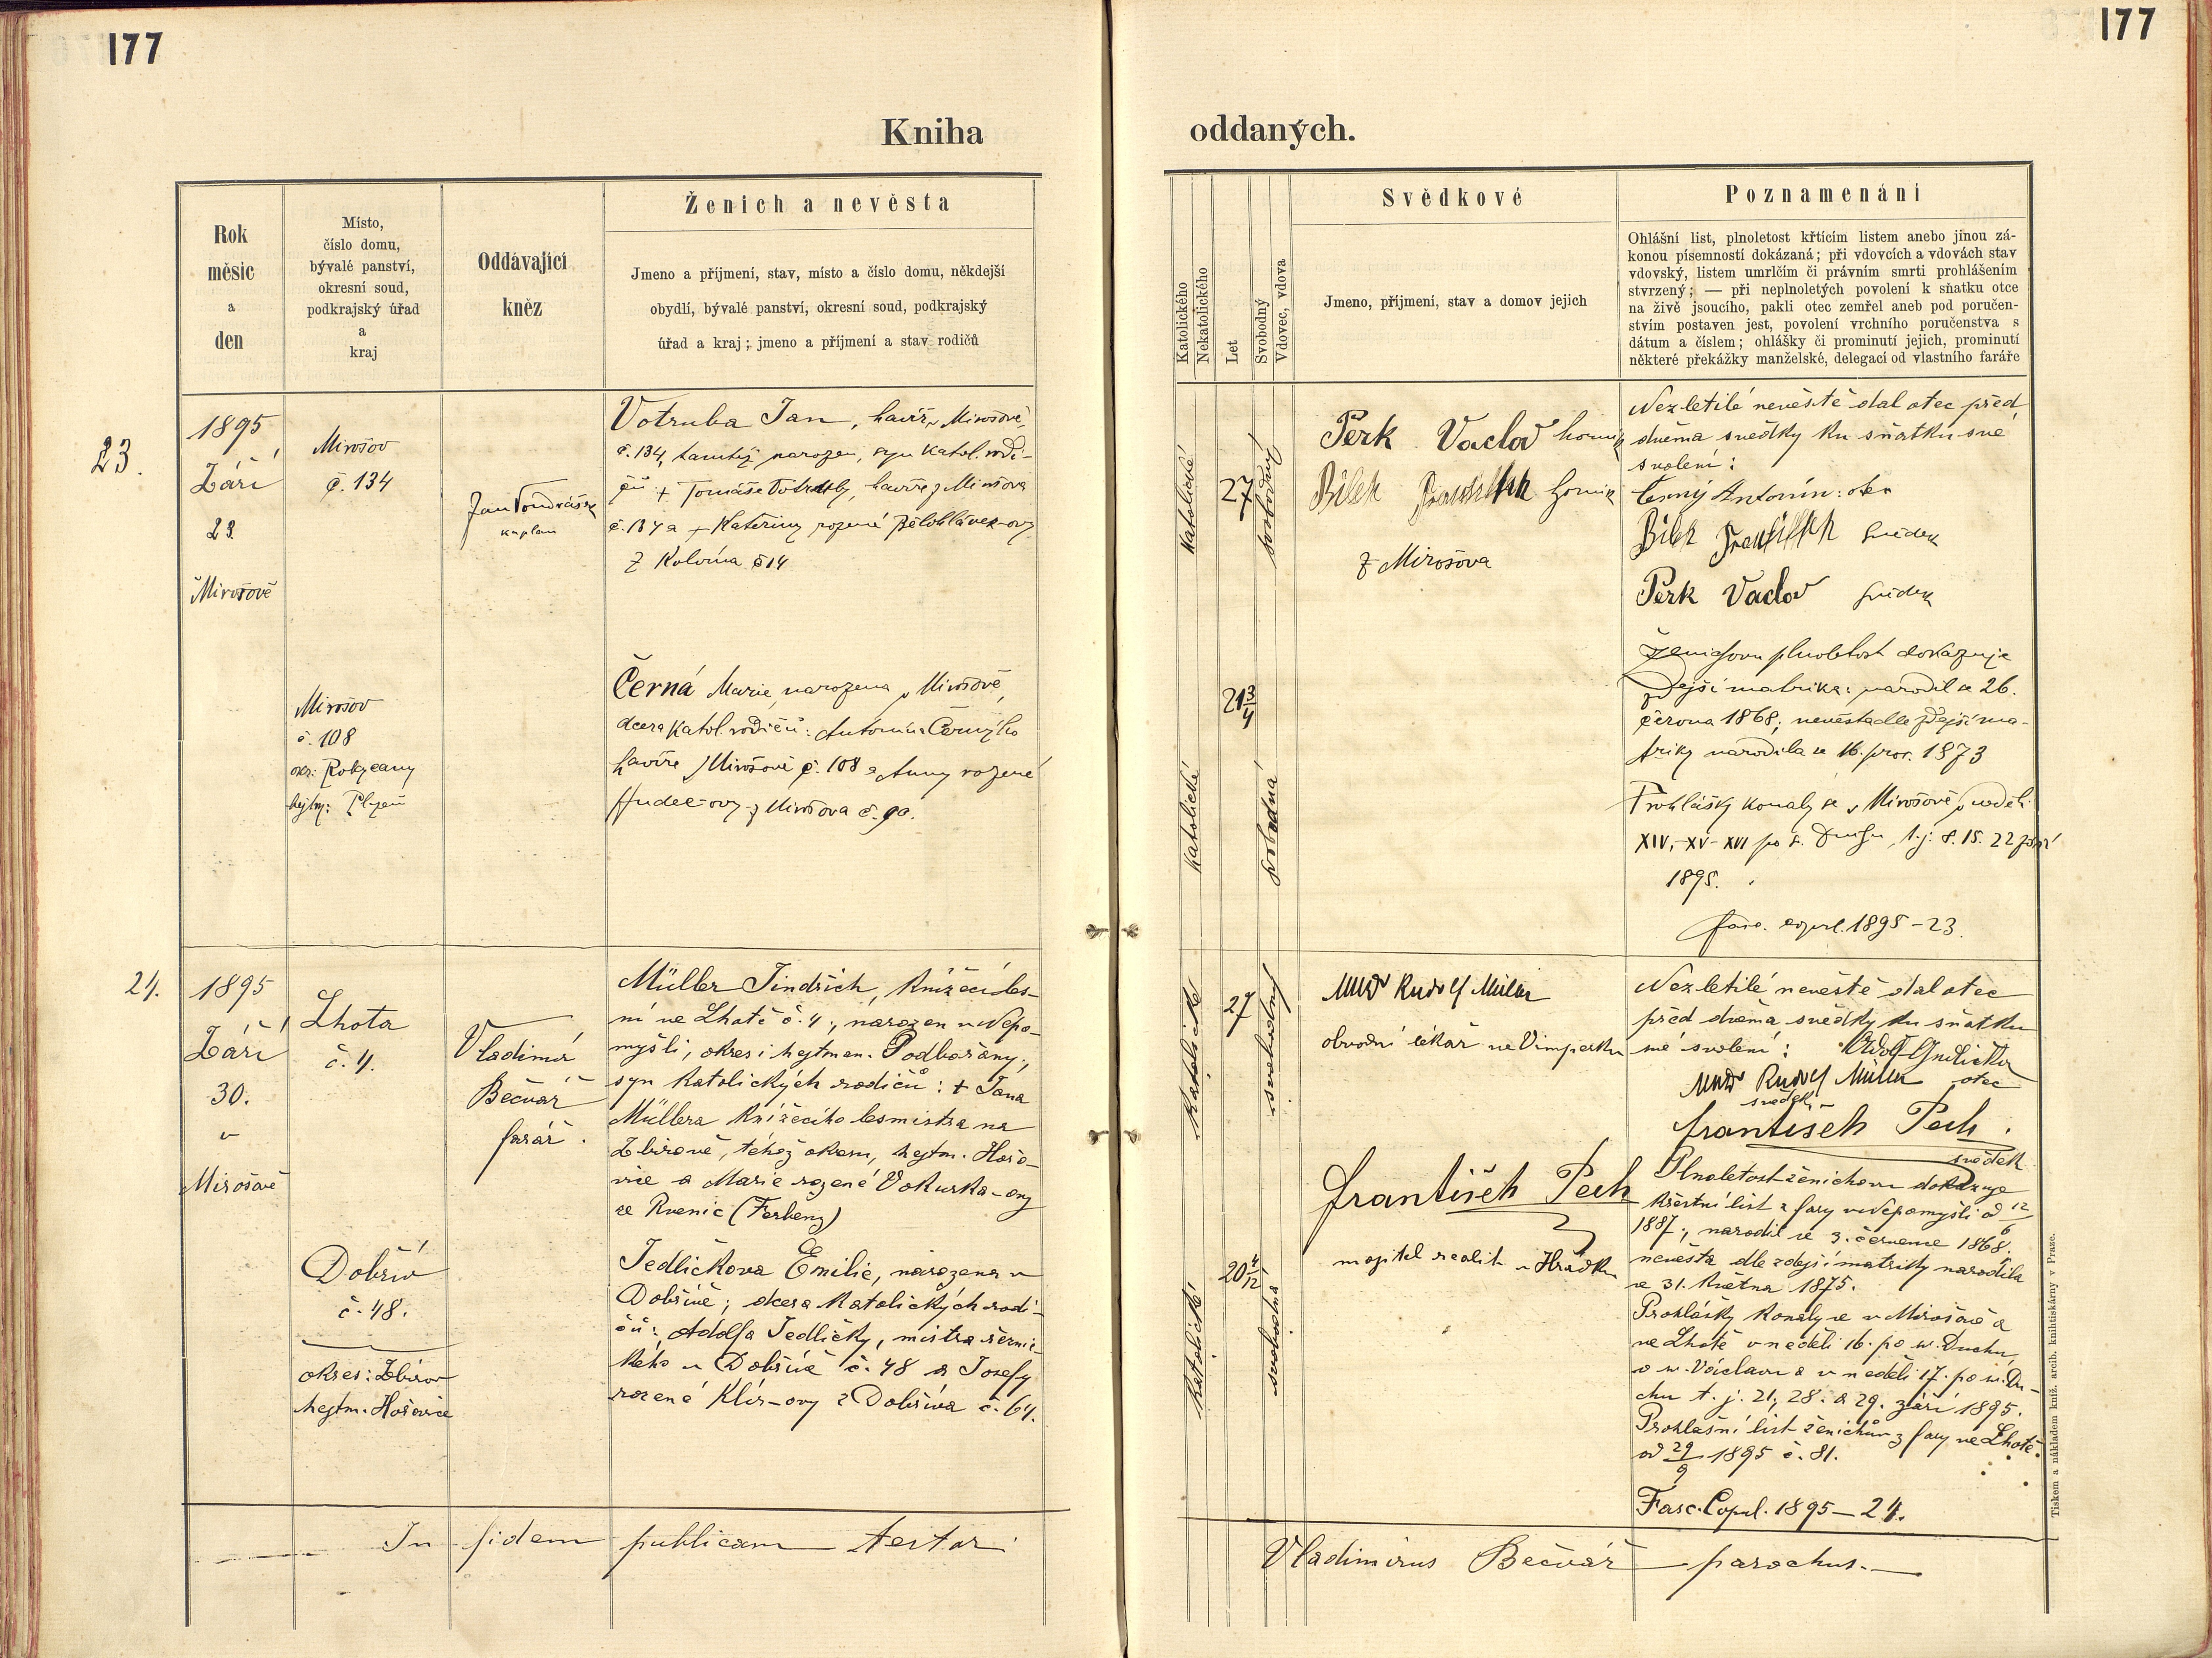 177
177
Kniha
oddaných.
Rok
měsíc
a
den
Místo,
číslo domu,
bývalé panství,
okresní soud,
podkrajský úřad
a
kraj
Oddávající
kněz
Ženich a nevěsta
Jmeno a příjmení, stav, místo a číslo domu, někdejší
obydlí, bývalé panství, okresní soud, podkrajský
úřad a kraj; jmeno a příjmení a stav rodičů
Katolického
Nekatolického
Let
Svobodný
Vdovec, vdova
Svědkové
Jmeno, příjmení, stav a domov jejich
Poznamenáni
Ohlášní list, plnoletost křtícím listem anebo jinou zá-
konou písemností dokázaná; při vdovcích a vdovách stav
vdovský, listem umrlčím či právním smrti prohlášením
stvrzený; — při neplnoletých povolení k sňatku otce
na živě jsoucího, pakli otec zemřel aneb pod poručen-
stvím postaven jest, povolení vrchního poručenstva s
dátum a číslem; ohlášky či prominutí jejich, prominutí
některé překážky manželské, delegací od vlastního faráře
23.
1895
Září
23
Mirošově
Mirošov
č. 134
Jan Vondrášek
kaplan
Votruba Jan, havíř v Mirošově,
č. 134, tamtéž narozen, syn katol. rodi-
čů + Tomáše Votruby, havíře z Mirošova
č. 134 a + Kateřiny rozené Bělohlávek-ovy
z Kolvína č 14
Mirošov
č. 108
okr: Rokycany
hejtm: Plzeň
Černá Marie, narozena v Mirošově,
dcera katol. rodičů: Antonína Černýho
havíře v Mirošově č. 108 a Anny rozené
Hudec-ovy z Mirošova č. 90.
katolické
27
svobodný
21 3/4
katolické
svobodná
Perk Vaclav hornik
Bilek František hornik
z Mirošova
Nezletilé nevěstě dal otec před
dvěma svědky ku sňatku své
svolení:
Černý Antonín: otec
Bilek František svědek
Perk Vaclav svědek
Ženichovu plnoletost dokazuje
zdejší matrika: narodil se 26.
června 1868; nevěsta dle zdejší ma-
triky narodila se 16. pros. 1873
Prohlášky konaly se v Mirošově v neděli
XIV. - XV - XVI po s. Duchu, t. j. 8. 15. 22 září
1895.
Fasc. copul. 1895 - 23.
24.
1895
Září
30.
v
Mirošově
Lhota
č. 4.
Vladimír
Bečvář
farář.
Müller Jindřich, knížecí les-
ní ve Lhotě č. 4., narozen v Nepo-
myšli, okres i hejtman. Podbořany,
syn katolických rodičů: + Jana
Müllera knížecího lesmistra na
Zbirově, téhož okresu, hejtm. Hořo-
vice a Marie rozené Vokurka-ovy
ze Rvenic (Ferbenz)
Dobřív
č. 48.
okres: Zbirov
hejtm. Hořovice
Jedličkova Emilie, narozena v
Dobřívě; dcera katolických rodi-
čů: Adolfa Jedličky, mistra
kého v Dobřívě č. 48 a Josefy
rozené Klír-ovy z Dobříva č. 64.
katolické
27
svobodný
20 4/12
katolické
svobodná
MUDr Rudolf Müller
obvodní lékař ve Vimperku
František Pech
majitel realit v Hrádku
Nezletilé nevěstě dal otec
před dvěma svědky ku sňatku
své svolení: Adolf Jedlička
MUDr Rudolf Müller otec
svědek
František Pech.
svědek
Plnoletost ženichovu dokazuje
křestní list z fary v Nepomyšli od 12/6
1887., narodil se 3. července 1868.
nevěsta dle zdejší matriky narodila
se 31. května 1875.
Prohlášky konaly se v Mirošově a
ve Lhotě v neděli 16. po sv. Duchu,
o sv. Václavu a v neděli 17. po sv. Du-
chu t. j. 21, 28. a 29. září 1895.
Prohlašní list ženichův z fary ve Lhotě
od 29/9 1895 č. 81.
Fasc. Copul. 1895 — 24.
In fidem publicam testor
Vladimirus Bečvář parochus.
Tiskem a nákladem kníž. arcib. knihtiskárny v Praze.